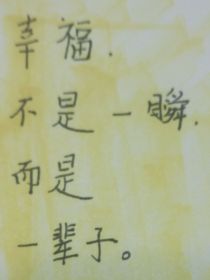 幸福.
不是一瞬.
而是
一辈子。